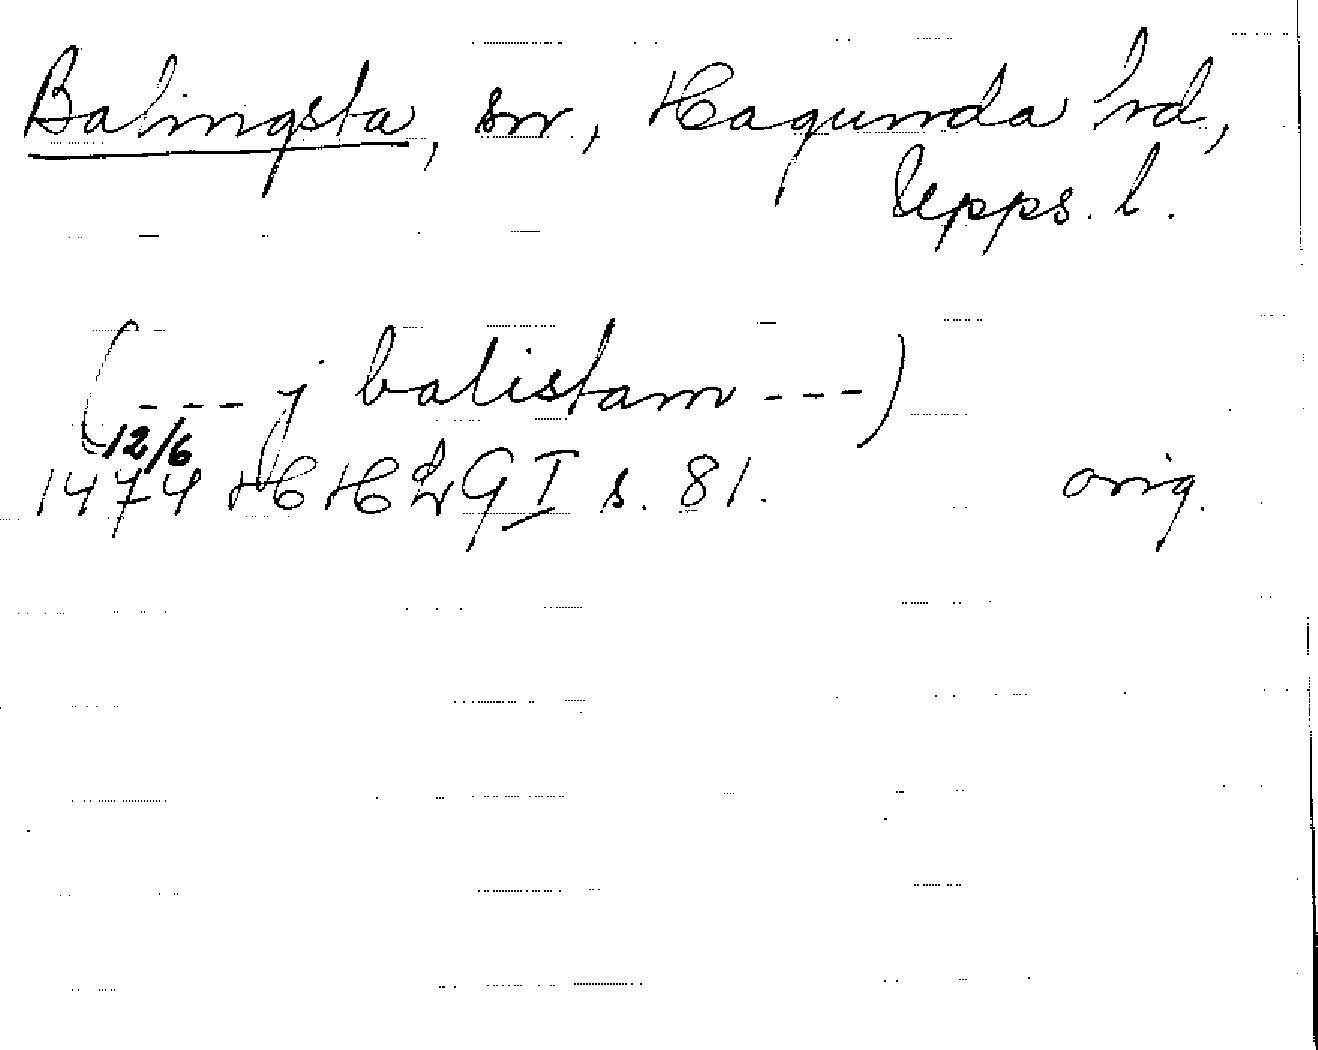 Balingsta, sn, Hagunda hd,
Upps. l.
(--- j balistam ---)
12/6
1474 HH LG I s. 81. orig.